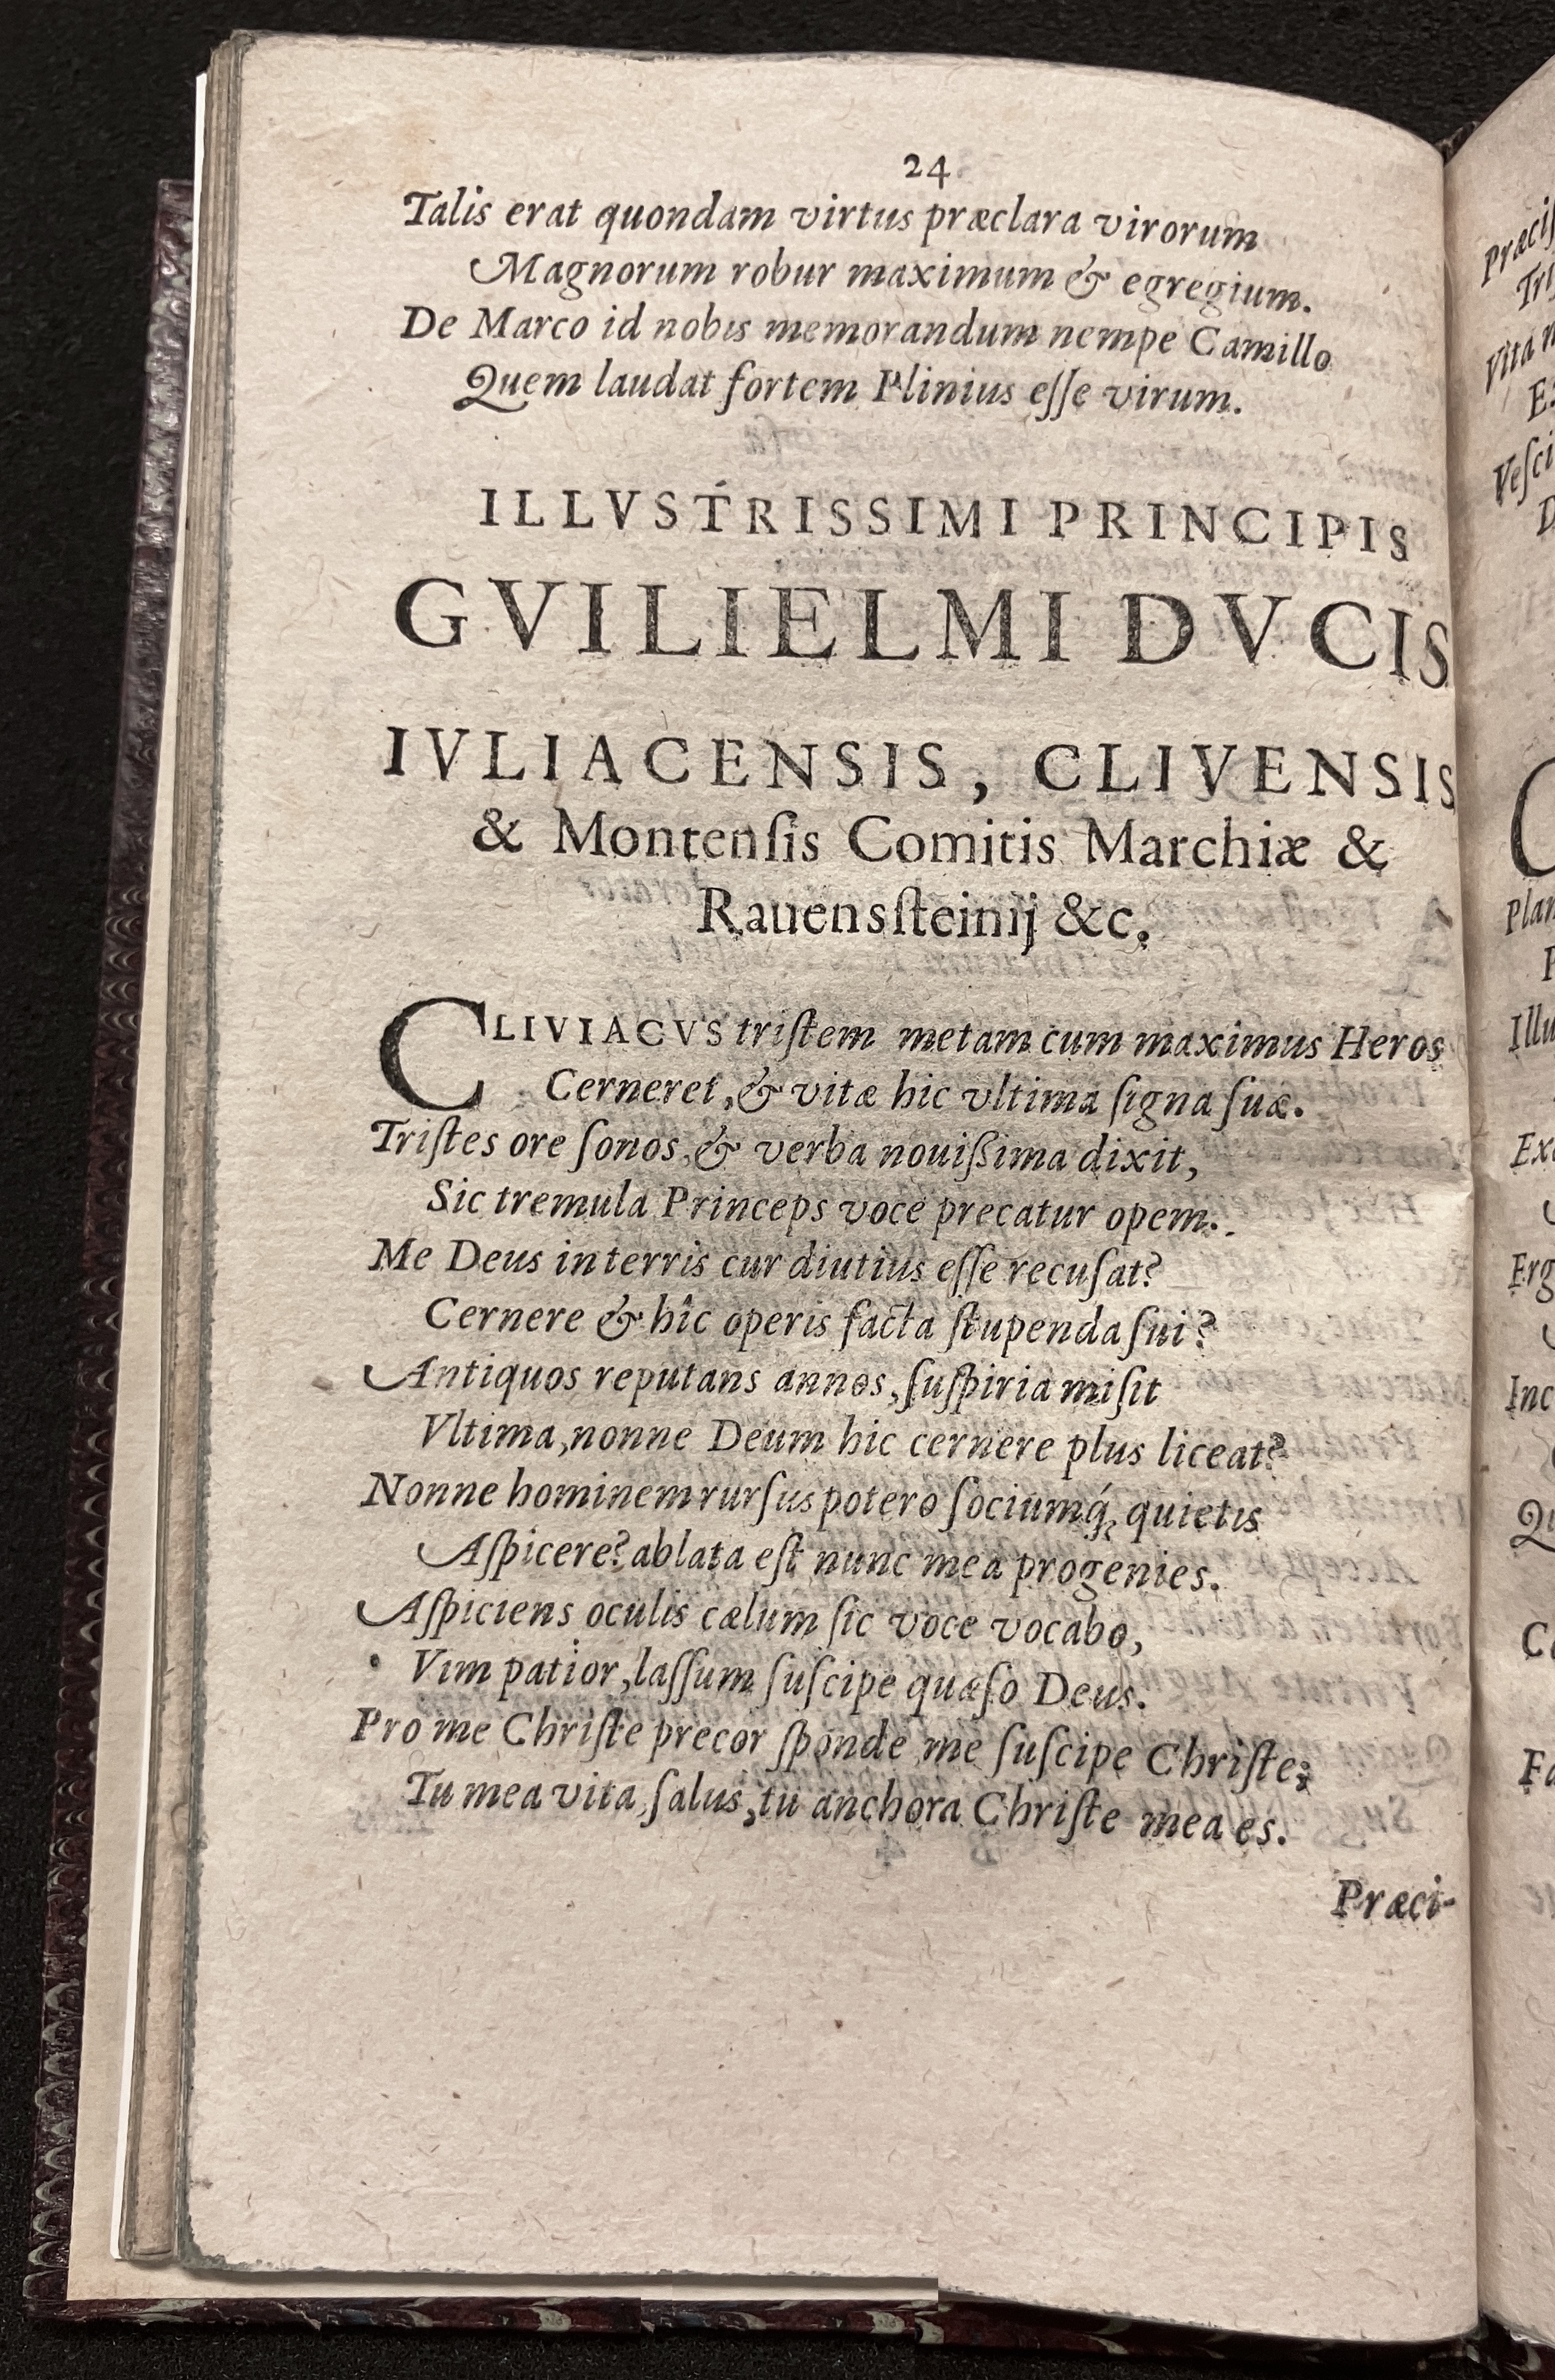 24
Talis erat quondam virtus præclara virorum
Magnorum robur maximum & egregium.
De Marco id nobis memorandum nempe Camillo
Quem laudat fortem Plinius eſſe virum.
ILLVSTRISSIMI PRINCIPIS
GVILIELMI DVCIS
IVLIACENSIS, CLIVENSIS
& Montenſis Comitis Marchiæ &
Rauensſteinij &c.
CLIVIACVS triſtem metam cum maximus Heros
Cerneret, & vitæ hic vltima ſigna ſuæ.
Triſtes ore ſonos, & verba nouiſsima dixit,
Sic tremula Princeps voce precatur opem.
Me Deus in terris cur diutius eſſe recuſat?
Cernere & hîc operis facta ſtupenda ſui?
Antiquos reputans annos, ſuſpiria miſit
Vltima, nonne Deum hic cernere plus liceat?
Nonne hominem rurſus potero ſociumq́; quietis
Aſpicere? ablata eſt nunc mea progenies.
Aſpiciens oculis cælum ſic voce vocabo,
Vim patior, laſſum ſuſcipe quæſo Deus.
Pro me Chriſte precor ſponde me ſuſcipe Chriſte;
Tu mea vita, ſalus, tu anchora Chriſte mea es.
Præci-
Vita
Plan
Illu
Erg
Inc